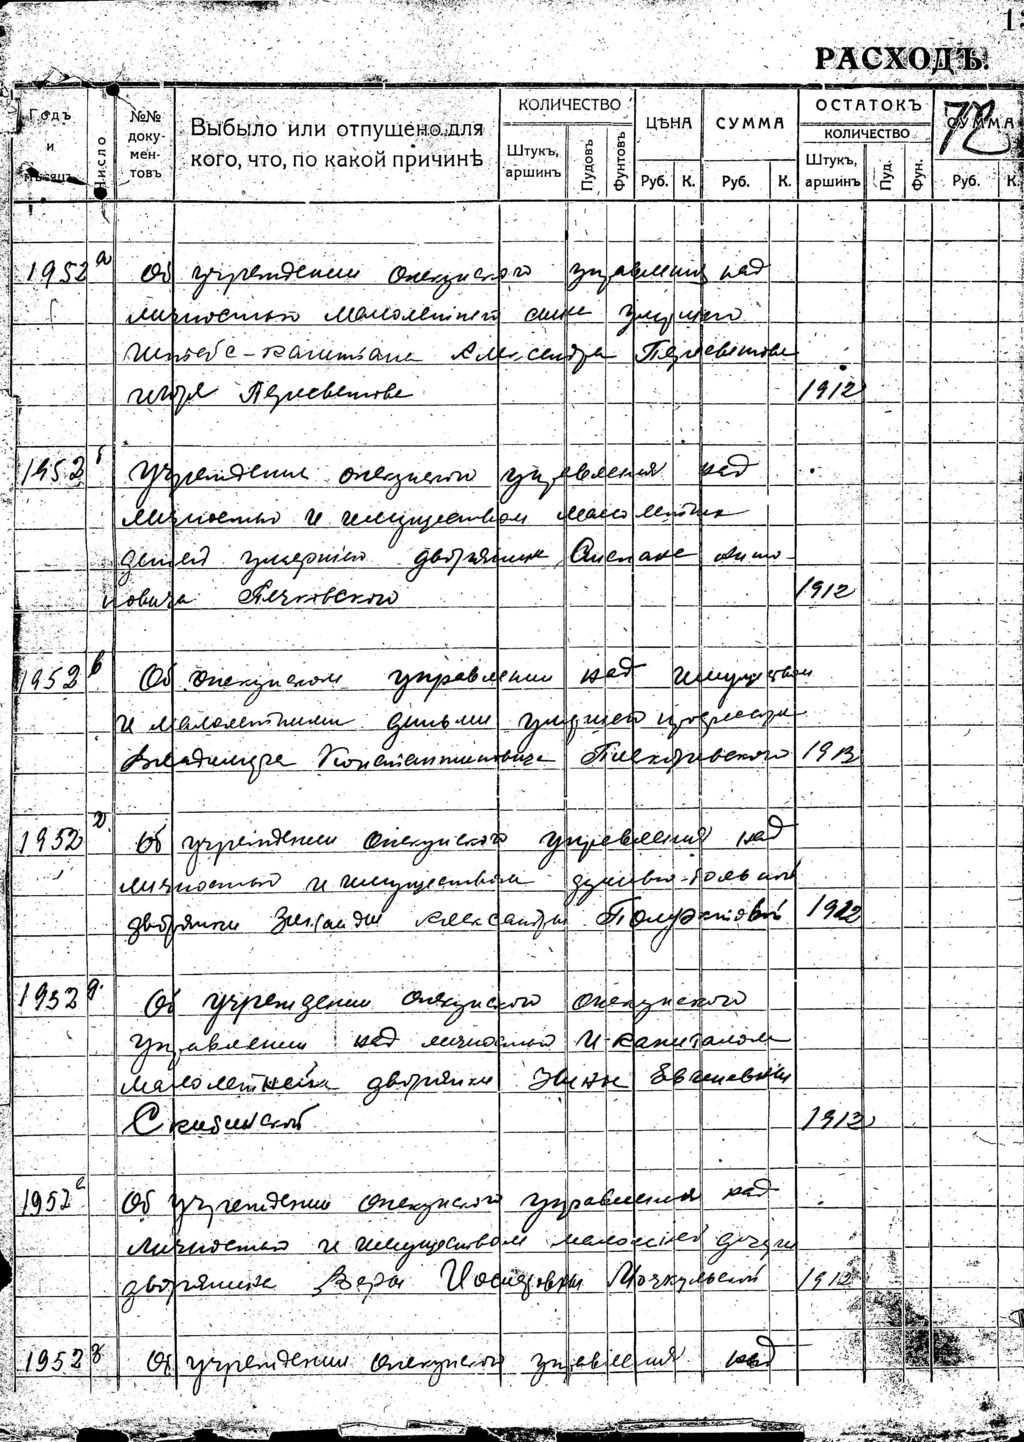 РАСХОДЪ.
72
Годъ и мѣсяцъ Число №№ доку-мен-товъ Выбыло или отпущено для кого, что, по какой причинѣ КОЛИЧЕСТВО Штукъ, аршинъ Пудовъ Фунтовъ ЦѢНА Руб. К. СУММА Руб. К. ОСТАТОКЪ КОЛИЧЕСТВО Штукъ, аршинъ Пуд. Фун. СУММА Руб. К.
1952 а Об учреждении опекунского управления над
личностью малолетнего сына умершего
штабс-капитана Александра Пересветова
Игоря Пересветова 1912
1952 б Учреждении опекунского управления над
личностью и имуществом малолетних
детей умершего дворянина
Печковского 1912
1952 в Об опекунском управлении над имуществом
и малолетними детьми умершего профессора
Владимира Константиновича 1913
1952 г. Об учреждении опекунского управления над
личностью и имуществом душевно-больной
дворянки Зинаиды Александры 1912
1952 д. Об учреждении опекунского опекунского
управлении над личностью и капиталом
малолетней дворянки
Скибинской 1912
1952 е Об учреждении опекунского управления над
личностью и имуществом малолетней дочери
дворянина Веры Иосифовны 1912
1952 Об учреждении опекунского управления над